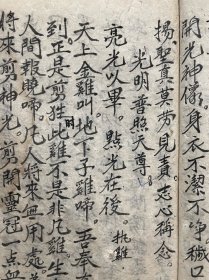 開光神儀。身衣不潔。不净穢巳
揚。聖真莫労見責。志心稱念。
光明垂照天尊。
亮光以畢。點光在後。執雞
天上金雞叫。地下子雞啼。吾奉
到正是剪牲時。此雞不是非凡雞。生
人間報曉啼。凡人將來無用處。弟
將來剪神光。剪開靈冠一点血